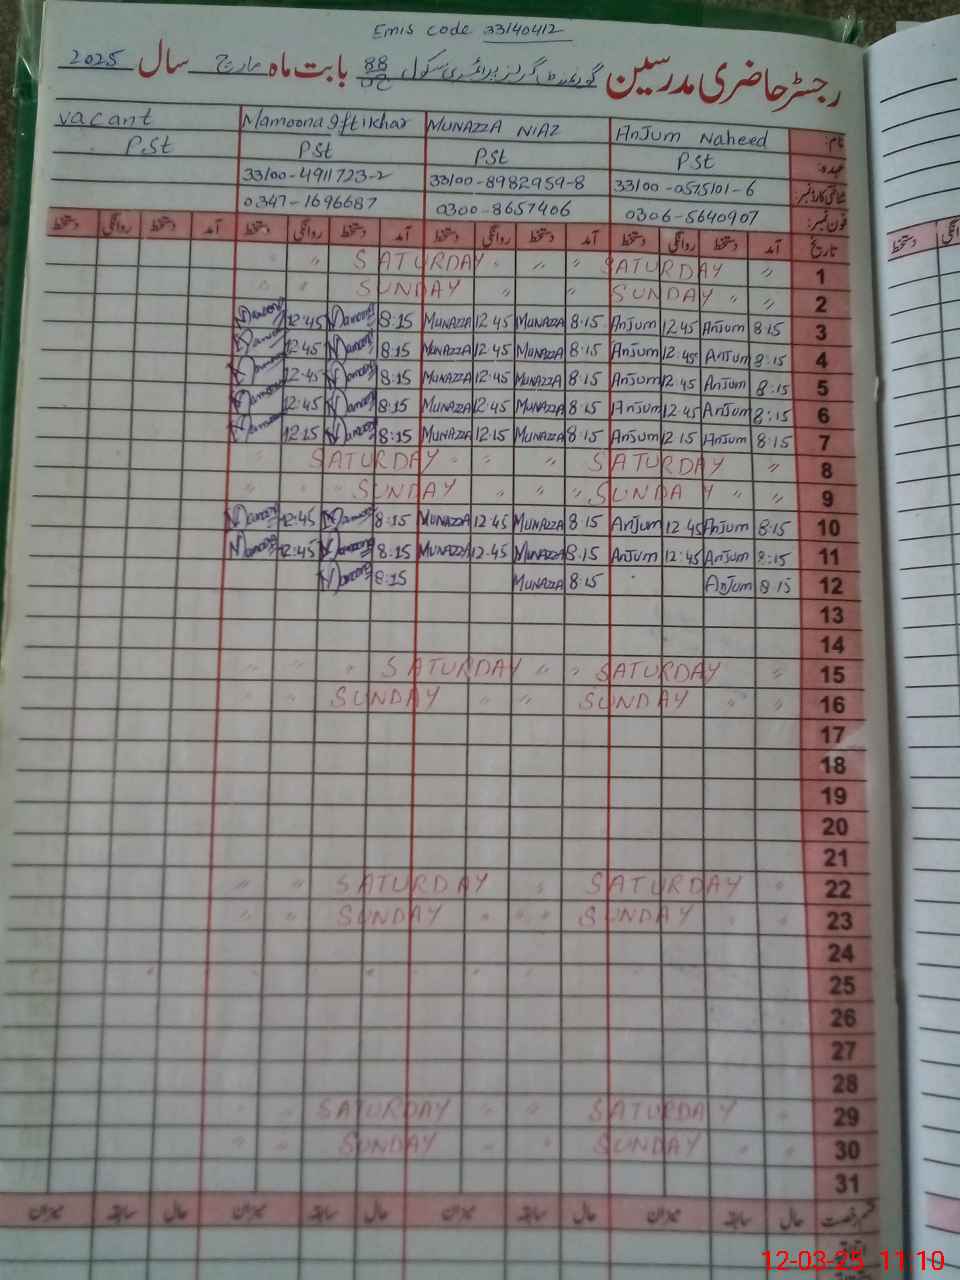 Emis code 33140412
رجسٹر حاضری مدرسین گورنمنٹ گرلز پرائمری سکول 88 بابت ماہ مارچ سال 2025
نام: Anjum Naheed MUNAZZA NIAZ Mamoona Iftikhar Vacant
عہدہ: PSt PSt PSt PSt
شناختی کارڈ نمبر 33100-0575101-6 33100-8982959-8 33100-4911723-2
فون نمبر: 0306-5640907 0300-8657406 0347-1696687
تاریخ آمد دستخط روانگی دستخط آمد دستخط روانگی دستخط آمد دستخط روانگی دستخط آمد دستخط روانگی دستخط
1 " SATURDAY " " " SATURDAY "
2 " " SUNDAY " " SUNDAY " "
3 8:15 Anjum 12:45 Anjum 8:15 MUNAZZA 12:45 MUNAZZA 8:15 Mamoona 12:45 Mamoona
4 8:15 Anjum 12:45 Anjum 8:15 MUNAZZA 12:45 MUNAZZA 8:15 Mamoona 12:45 Mamoona
5 8:15 Anjum 12:45 Anjum 8:15 MUNAZZA 12:45 MUNAZZA 8:15 Mamoona 12:45 Mamoona
6 8:15 Anjum 12:45 Anjum 8:15 MUNAZZA 12:45 MUNAZZA 8:15 Mamoona 12:45 Mamoona
7 8:15 Anjum 12:15 Anjum 8:15 MUNAZZA 12:15 MUNAZZA 8:15 Mamoona 12:15 Mamoona
8 " SATURDAY " " " SATURDAY "
9 " " SUNDAY " " " SUNDAY " "
10 8:15 Anjum 12:45 Anjum 8:15 MUNAZZA 12:45 MUNAZZA 8:15 Mamoona 12:45 Mamoona
11 8:15 Anjum 12:45 Anjum 8:15 MUNAZZA 12:45 MUNAZZA 8:15 Mamoona 12:45 Mamoona
12 8:15 Anjum 8:15 MUNAZZA 8:15 Mamoona
13
14
15 " SATURDAY " " SATURDAY " " "
16 " " SUNDAY " " SUNDAY " "
17
18
19
20
21
22 " SATURDAY " SATURDAY " "
23 " " SUNDAY " " " SUNDAY " "
24
25
26
27
28
29 " SATURDAY " " SATURDAY " "
30 " " SUNDAY " " SUNDAY " "
31
قسم رخصت حال سابقہ میزان حال سابقہ میزان حال سابقہ میزان حال سابقہ میزان
12-03-25 11:10